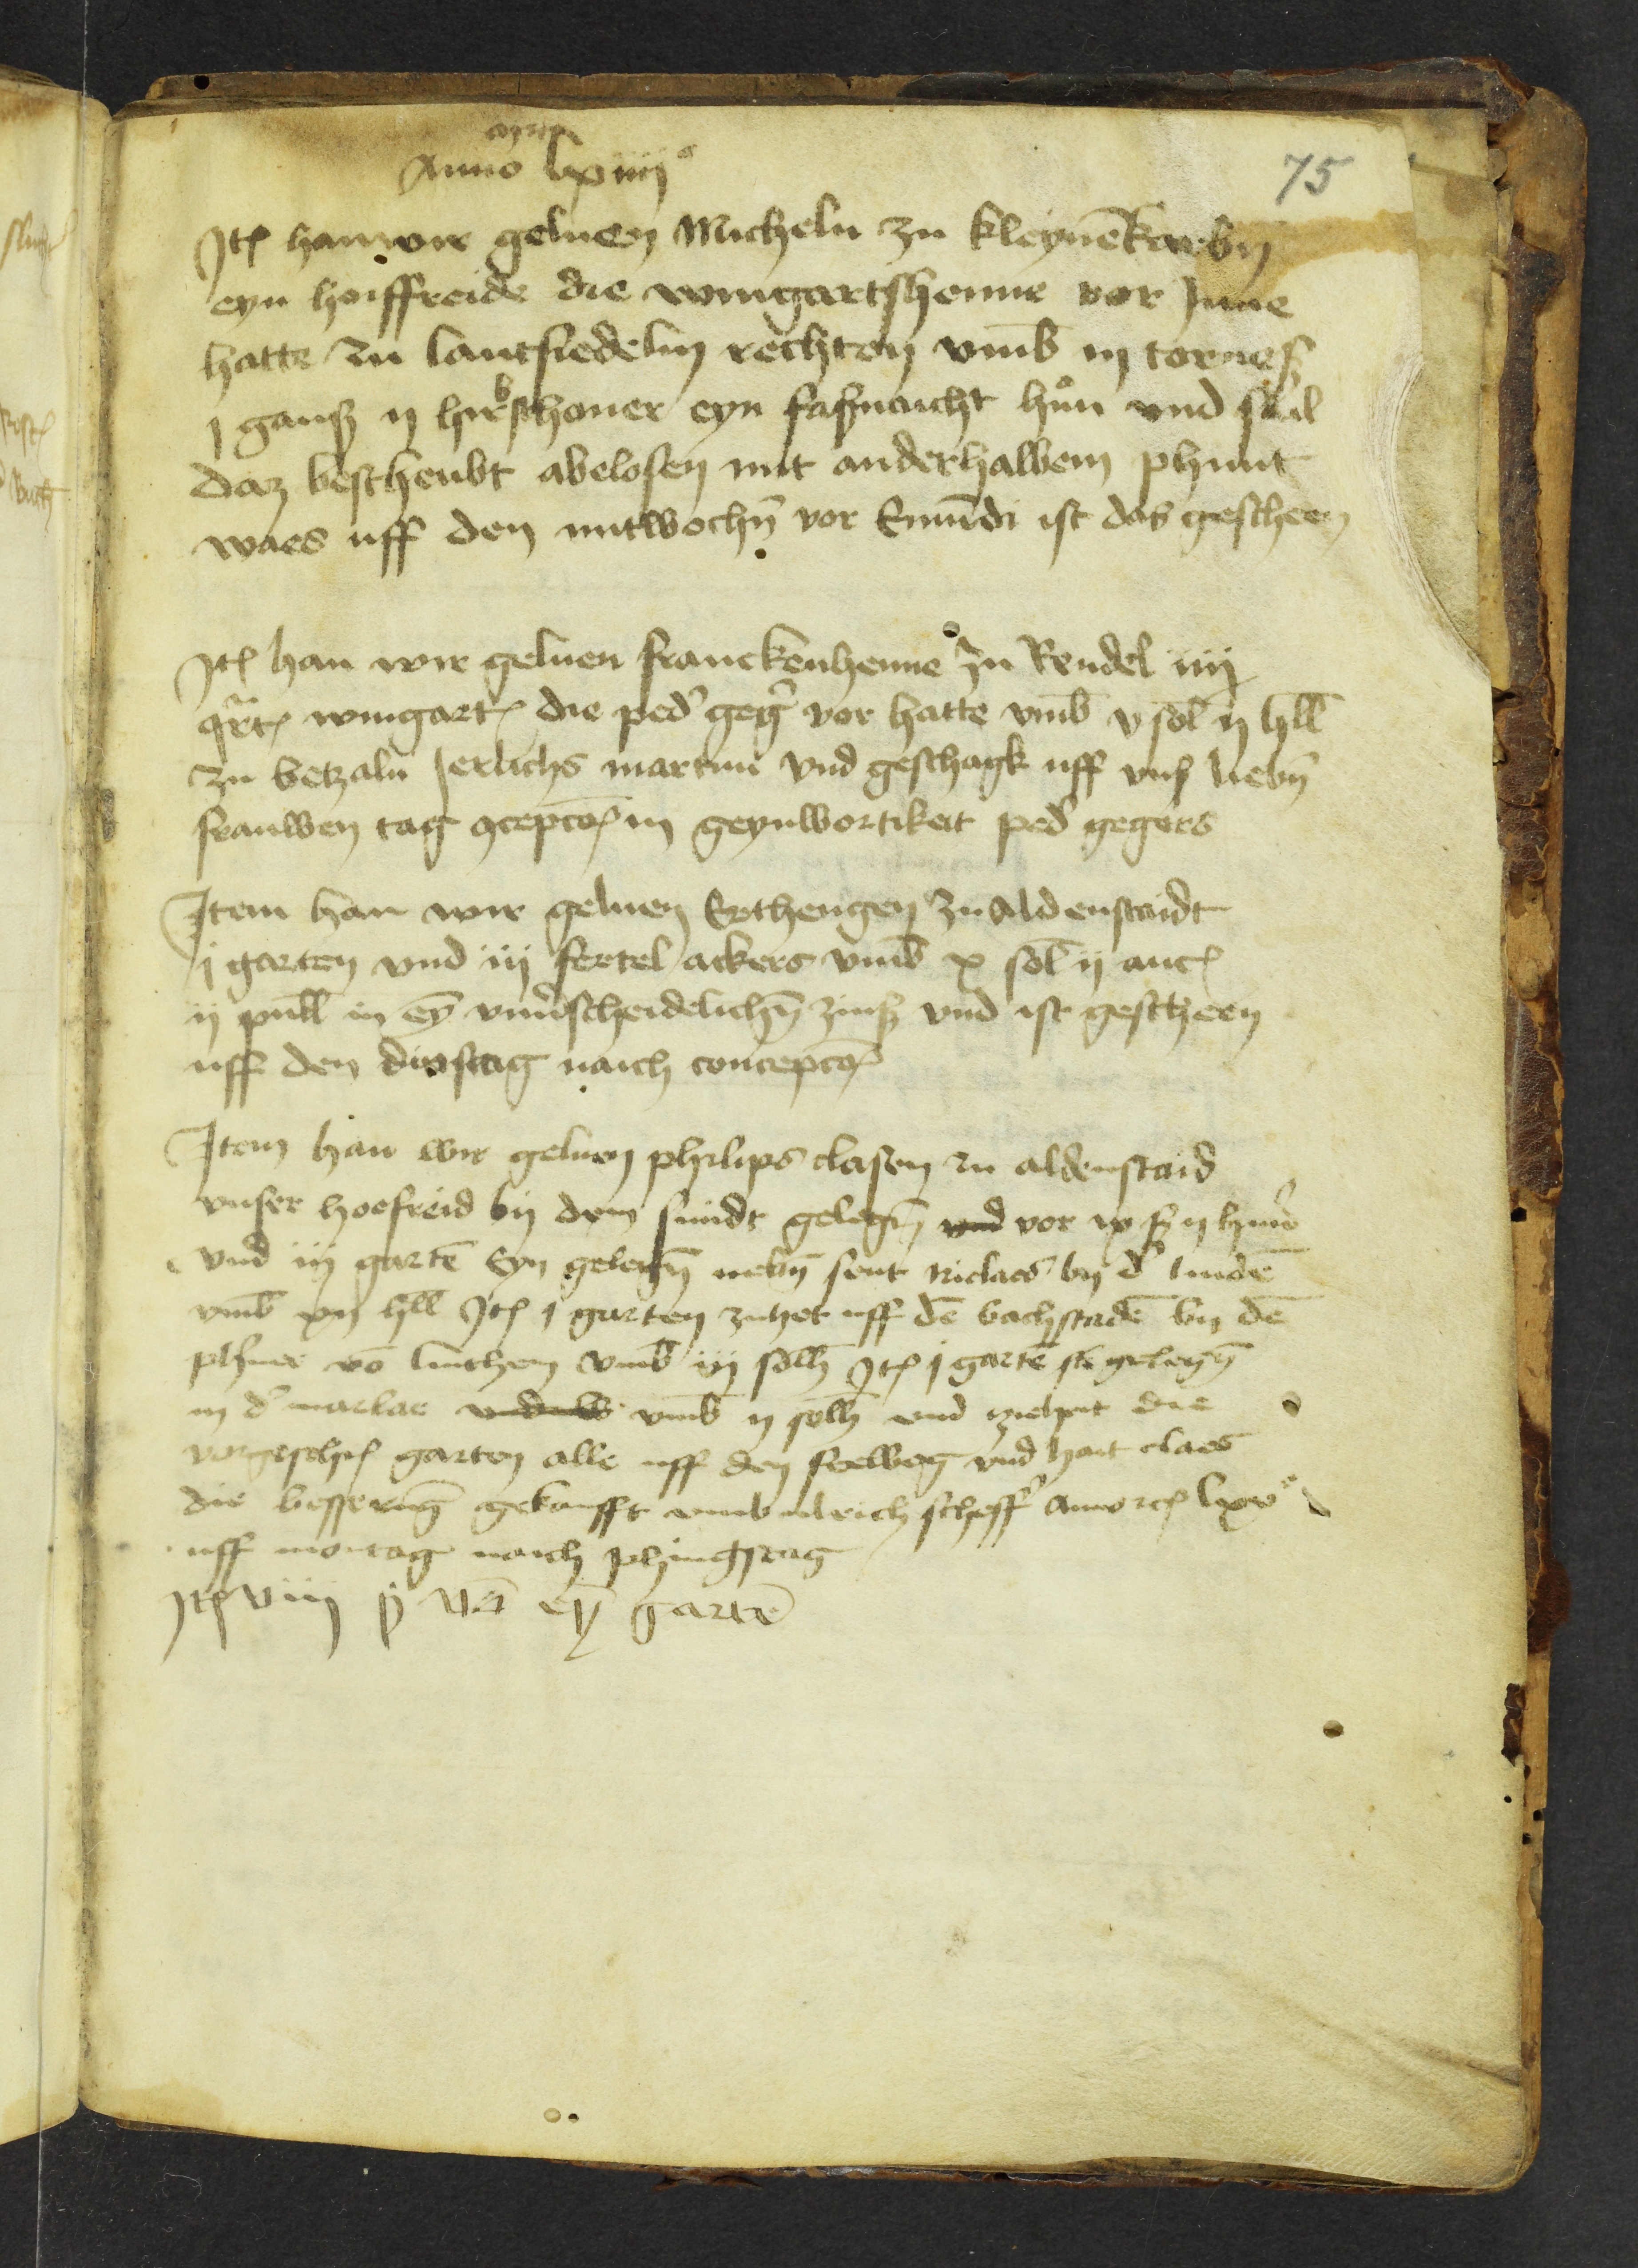 75
Anno lxiiii°
Itꝫ han wir geluen Micheln zu kleynēkarbin
eyn hoiffreide die wingartshenne vor Inne
hatte zu lantsiedelin rechten vmb iij tornes
j ganß ij hirbsthoner eyn faßnaicht hůn vnd sal
daz beschenbt abelosen mit anderhalbem phunt
waes uff den mitwochin vor Emūdi ist das gescheen
Itꝫ han wir geluen franckenhenne zu Rendel iiij
qrtꝫ wingartꝫ die ped' geg' vor hatte vmb v sol ij hll
zu betzaln Jerlichs martini vnd geschagk uff vnß liebn
frauwen tag 9cepcoꝫ in geynwortikeit ped' gegers
Item han wir geluen Erthengen zu Aldenstaidt
j garten vnd iij fertel ackers vmb x sol ij aucꝫ
ij pull in ey vnu'scheidelichn zinß vnd ist gescheen
uff den dinstag naich concepcoꝫ
Item han wir geluen philips clasen zu aldenstaid
vnser hoefreid by dem sundt gelegn vnd vor ix ß ij hun'
vnd iij gartē Eyn gelegn nebn sent niclaes by d' lindē
vmb xij hll Itꝫ j garten zuhet uff dē bachstadē by dē
phner vō linthem vmb iij solh Itꝫ j gartē gelegn
in d' marlae vmb ij solh vnd ziehent die
vorgeschꝫ garten alle uff den seelweg vnd hait claes
die besserūg gekaufft vmb ulrich scheff' anno rcꝫ lxv°
uff montag naich phingstag
Itꝫ viiij ß vō ey gartē